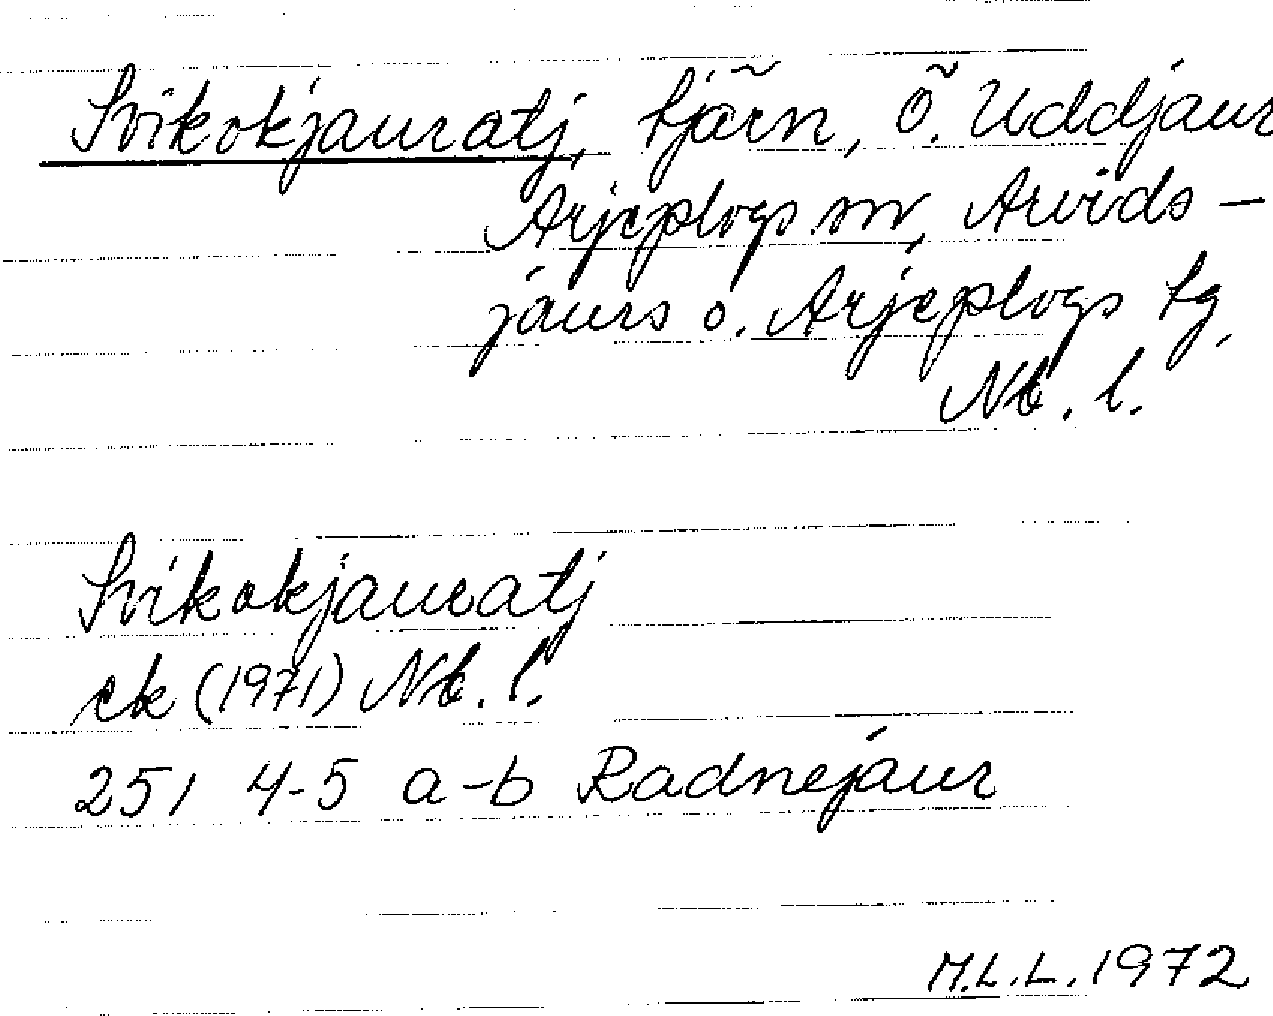 Svikokjauratj, tjärn, Ö. Uddjaur
Arjeplogs sn, Arvids-
jaurs o. Arjeplogs tg,
Nb. l.
Svikokjauratj
ek (1971) Nb. l.
251 4-5 a-b Radnejaur
M.L.L. 1972